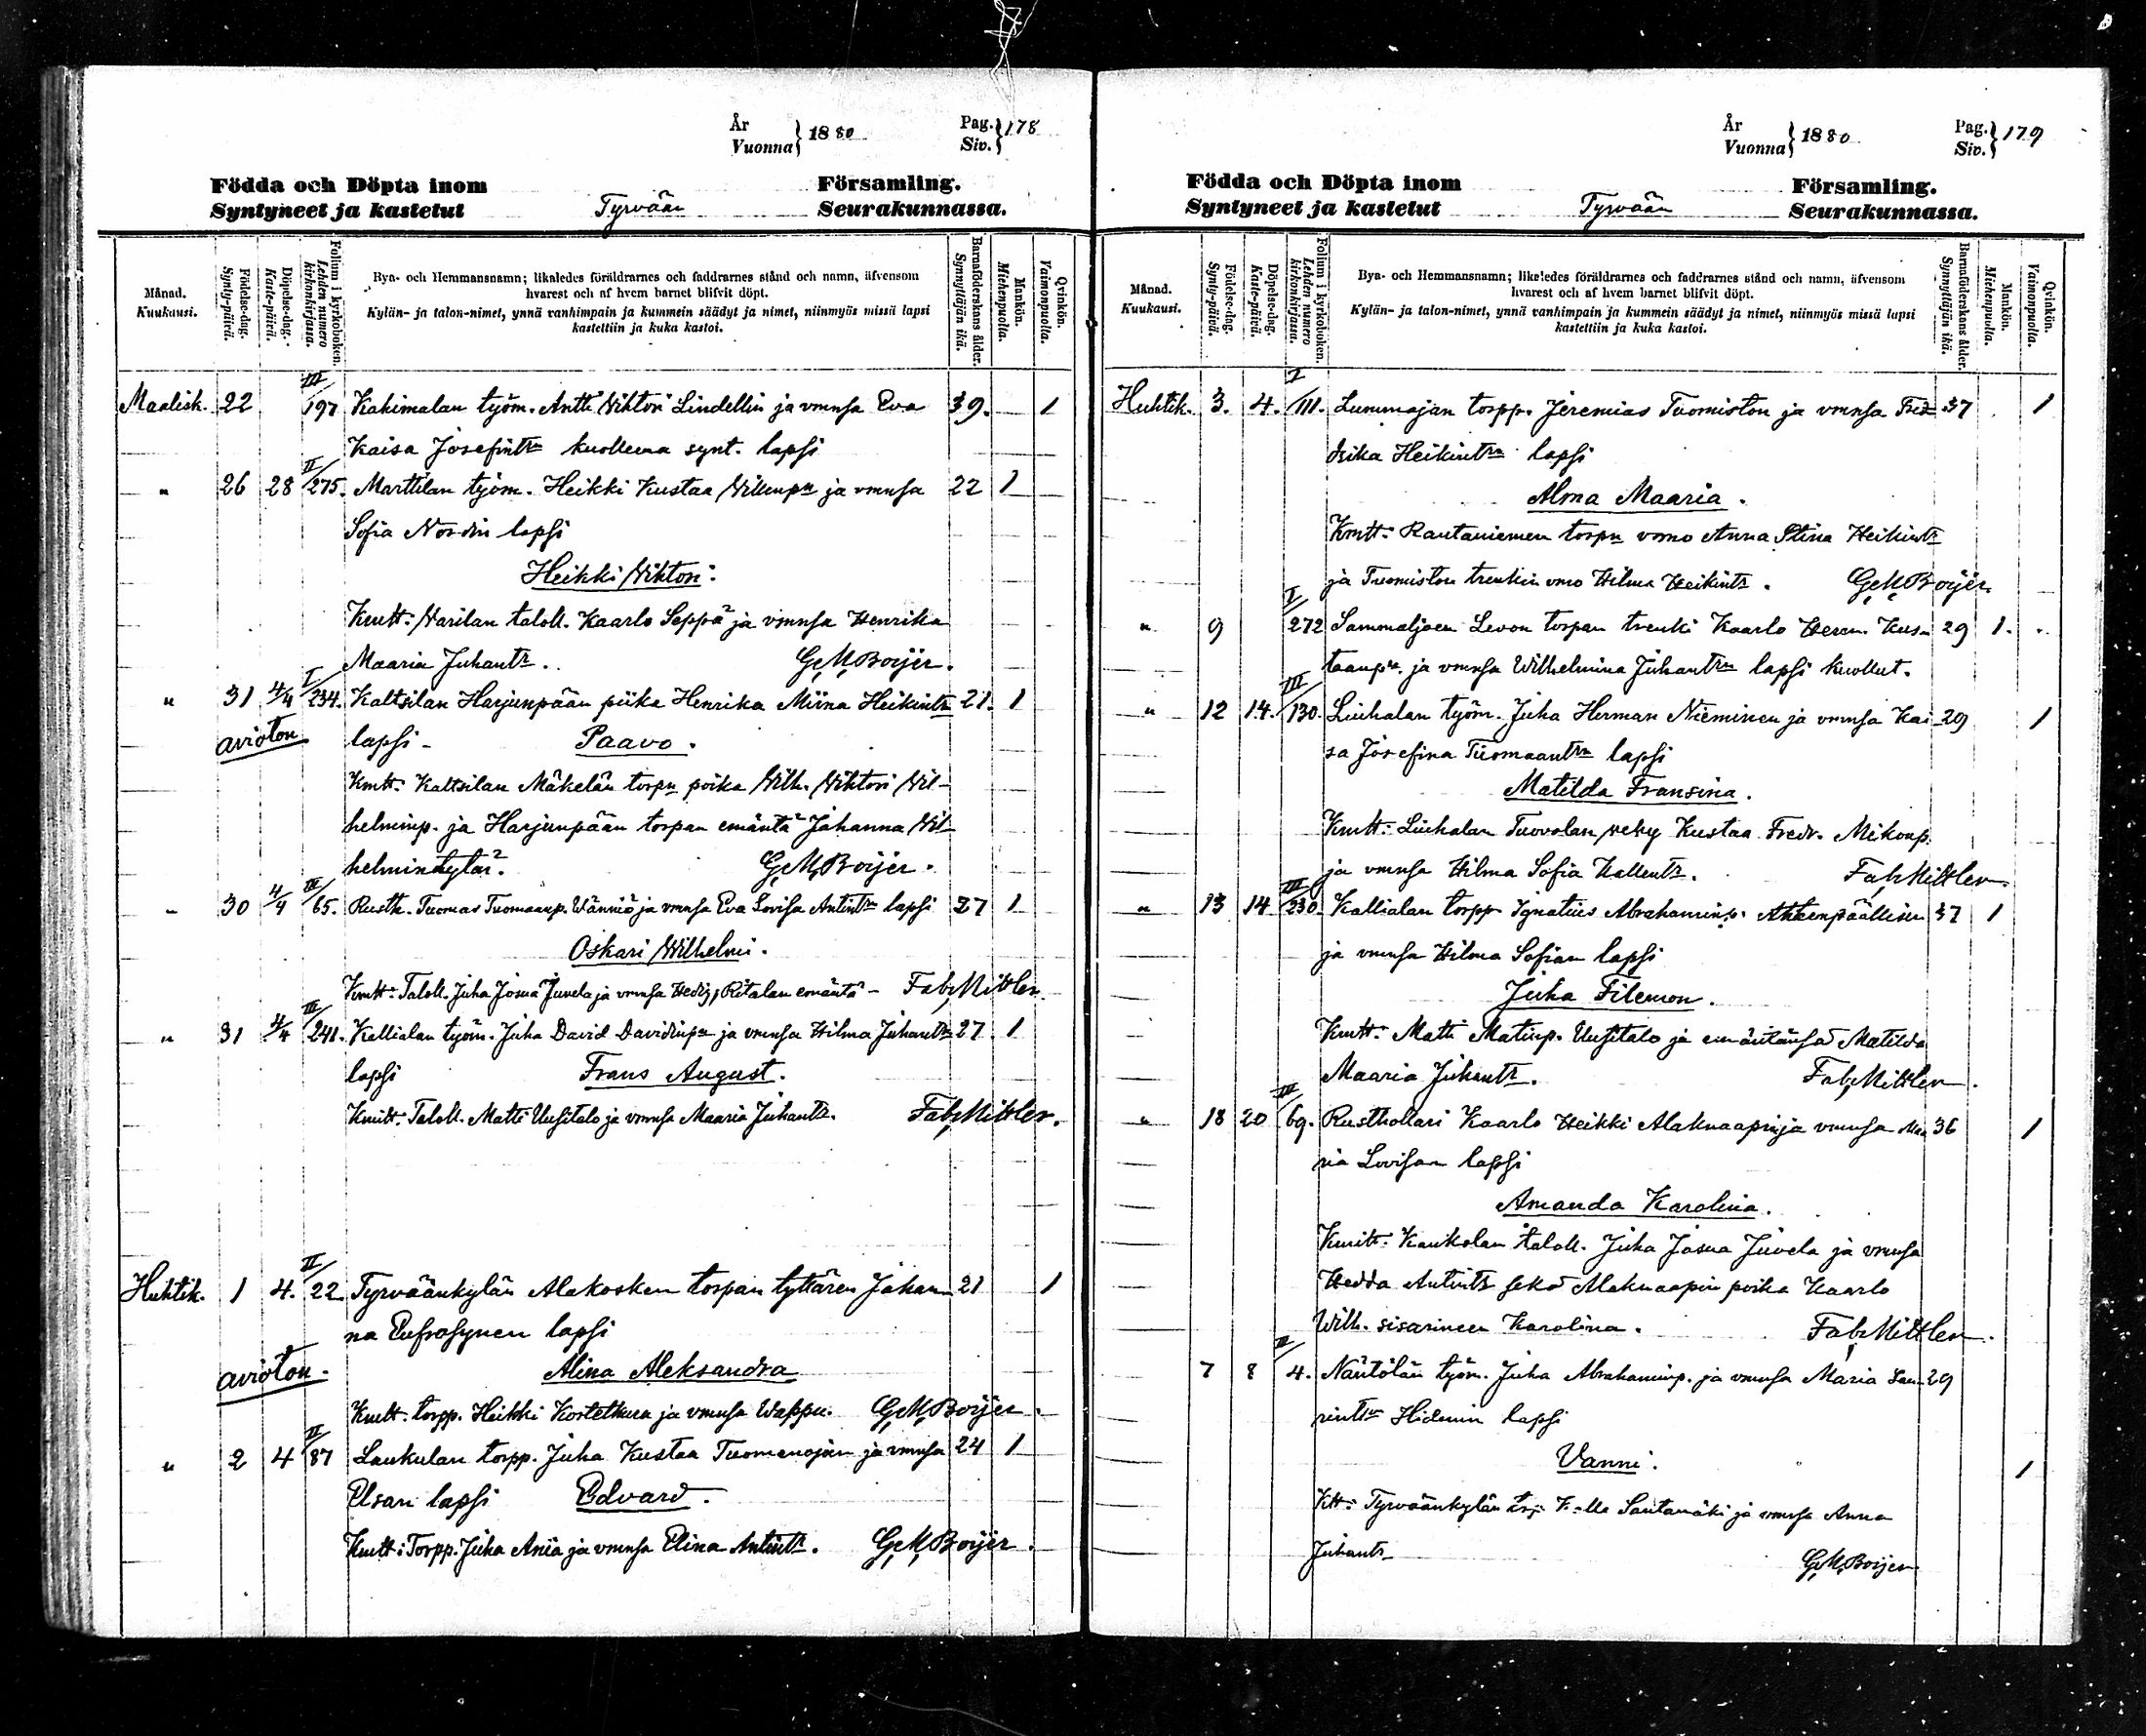 År
Vuonna } 1880 Pag. Siv. } 178
Födda och Döpta inom Församling.
Syntyneet ja kastetut Tyrvään Seurakunnassa.
Månad. Kuukausi.
Födelse-dag. Synty-päivä.
Döpelse-dag. Kaste-päivä.
Folium i kyrkoboken. Lehden numero kirkonkirjassa.
Bya- och Hemmansnamn; likaledes föräldrarnes och faddrarnes stånd och namn, äfvensom
hvarest och af hvem barnet blifvit döpt.
Kylän- ja talon-nimet, ynnä vanhimpain ja kummein säädyt ja nimet, niinmyös missä lapsi
kastettiin ja kuka kastoi.
Barnaföderskans ålder. Synnyttäjän ikä.
Mankön. Miehenpuolta.
Qvinkön. Vaimonpuolta.
Maalisk. 22 III/197 Kakimalan työm. Antti Wihtori Lindellin ja vmnsa Eva 39. 1
Kaisa Josefintr kuollema synt. lapsi
" 26 28 II/275. Marttilan työm. Heikki Kustaa Willmpn ja vmnsa 22 1
Sofia Nordin lapsi
Heikki Wihtori.
Kmtt: Warilan taloll. Kaarlo Seppä ja vmnsa Henrika
Maaria Juhantr. G.M.Boijer.
" 31 4/4 I/234. Kaltsilan Harjunpään piika Henrika Miina Heikintr 21. 1
avioton lapsi - Paavo.
Kmtt: Kaltsilan Mäkelän torpn poika Wilh. Wihtori Wil-
helminp. ja Harjunpään torpan emäntä Johanna Wil-
helmintytär. G.M.Boijer.
" 30 4/4 III/65. Rusth. Tuomas Tuomaanp. Wänniö ja vmnsa Eva Lovisa Antintr lapsi 27 1
Oskari Wilhelmi.
Kmtt: Taloll. Juha Josua Juvela ja vmnsa Hedvig, Ritalan emäntä - Fab. Mittler.
" 31 4/4 III/241. Kallialan työm. Juha David Davidinpn ja vmnsa Hilma Juhantr 27 1
lapsi Frans August.
Kmtt: Taloll. Matti Uusitalo ja vmnsa Maaria Juhantr. Fab. Mittler.
Huhtik. 1 4. II/22 Tyrväänkylän Alakosken torpan tyttären Johan- 21 1
na Eufrosynen lapsi
avioton. Alina Aleksandra
Kmtt: torpp. Heikki Kostetkura ja vmnsa Wappu. G.M.Boijer.
" 2 4 II/87 Laukulan torpp. Juha Kustaa Tuomenojan ja vmnsa 24 1
Elsan lapsi Edvard.
Kmtt: Torpp. Juha Ania ja vmnsa Elina Antintr. G.M.Boijer.
År
Vuonna } 1880 Pag. Siv. } 179
Födda och Döpta inom Församling.
Syntyneet ja kastetut Tyrvään Seurakunnassa.
Månad. Kuukausi.
Födelse-dag. Synty-päivä.
Döpelse-dag. Kaste-päivä.
Folium i kyrkoboken. Lehden numero kirkonkirjassa.
Bya- och Hemmansnamn; likaledes föräldrarnes och faddrarnes stånd och namn, äfvensom
hvarest och af hvem barnet blifvit döpt.
Kylän- ja talon-nimet, ynnä vanhimpain ja kummein säädyt ja nimet, niinmyös missä lapsi
kastettiin ja kuka kastoi.
Barnaföderskans ålder. Synnyttäjän ikä.
Mankön. Miehenpuolta.
Qvinkön. Vaimonpuolta.
Huhtik. 3. 4. I/111. Lummajan torpp. Jeremias Tuomiston ja vmnsa Fred- 37 1
rika Heikintrn lapsi
Alma Maaria.
Kmtt: Rautaniemen torpn vmo Anna Stina Heikintr
ja Tuomiston trenkin vmo Hilma Heikintr. G.M.Boijer.
" 9 I/272 Sammaljoen Levon torpan trenki Kaarlo Herm. Kus- 29 1.
taanpn ja vmnsa Wilhelmina Juhantrn lapsi kuollut.
" 12 14. III/130. Liuhalan työm. Juha Herman Nieminen ja vmnsa Kai- 29 1
sa Josefina Tuomaantrn lapsi
Matilda Fransina.
Kmtt: Liuhalan Tuovolan Kustaa Fredr. Mikonp.
ja vmnsa Hilma Sofia Kallentr. Fab. Mittler.
" 13 14 III/230. Kallialan torpp Ignatius Abrahaminp. Ahteenpäällisen 37 1
ja vmnsa Hilma Sofian lapsi
Juha Filemon.
Kmtt: Matti Matinp. Uusitalo ja emäntänsä Matilda
Maaria Juhantr. Fab. Mittler.
" 18 20 III/69. Rusthollari Kaarlo Heikki Alaknaapin ja vmnsa Maa- 36 1
ria Lovisan lapsi
Amanda Karolina.
Kmtt: Kaukolan taloll. Juha Josua Juvela ja vmnsa
Hedda Antintr sekä Alaknaapin poika Kaarlo
Wilh. sisarineen Karolina. Fab. Mittler.
7 8 II/4. Näntölän työm. Juha Abrahaminp. ja vmnsa Maria Lau- 29
rintr Hidmin lapsi
Vanni. 1
Ktt: Tyrväänkylän torp Kalle Santamäki ja vmnsa Anna
Juhantr G.M.Boijer